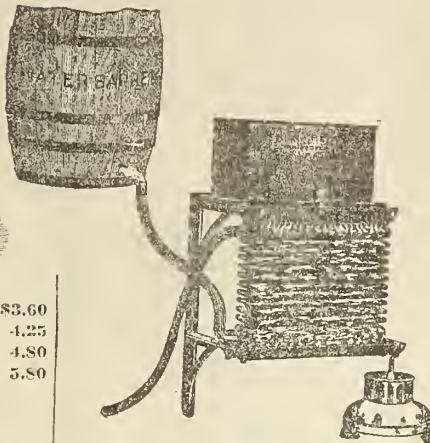 WATER BARREL
$3.60
4.25
4.80
5.80